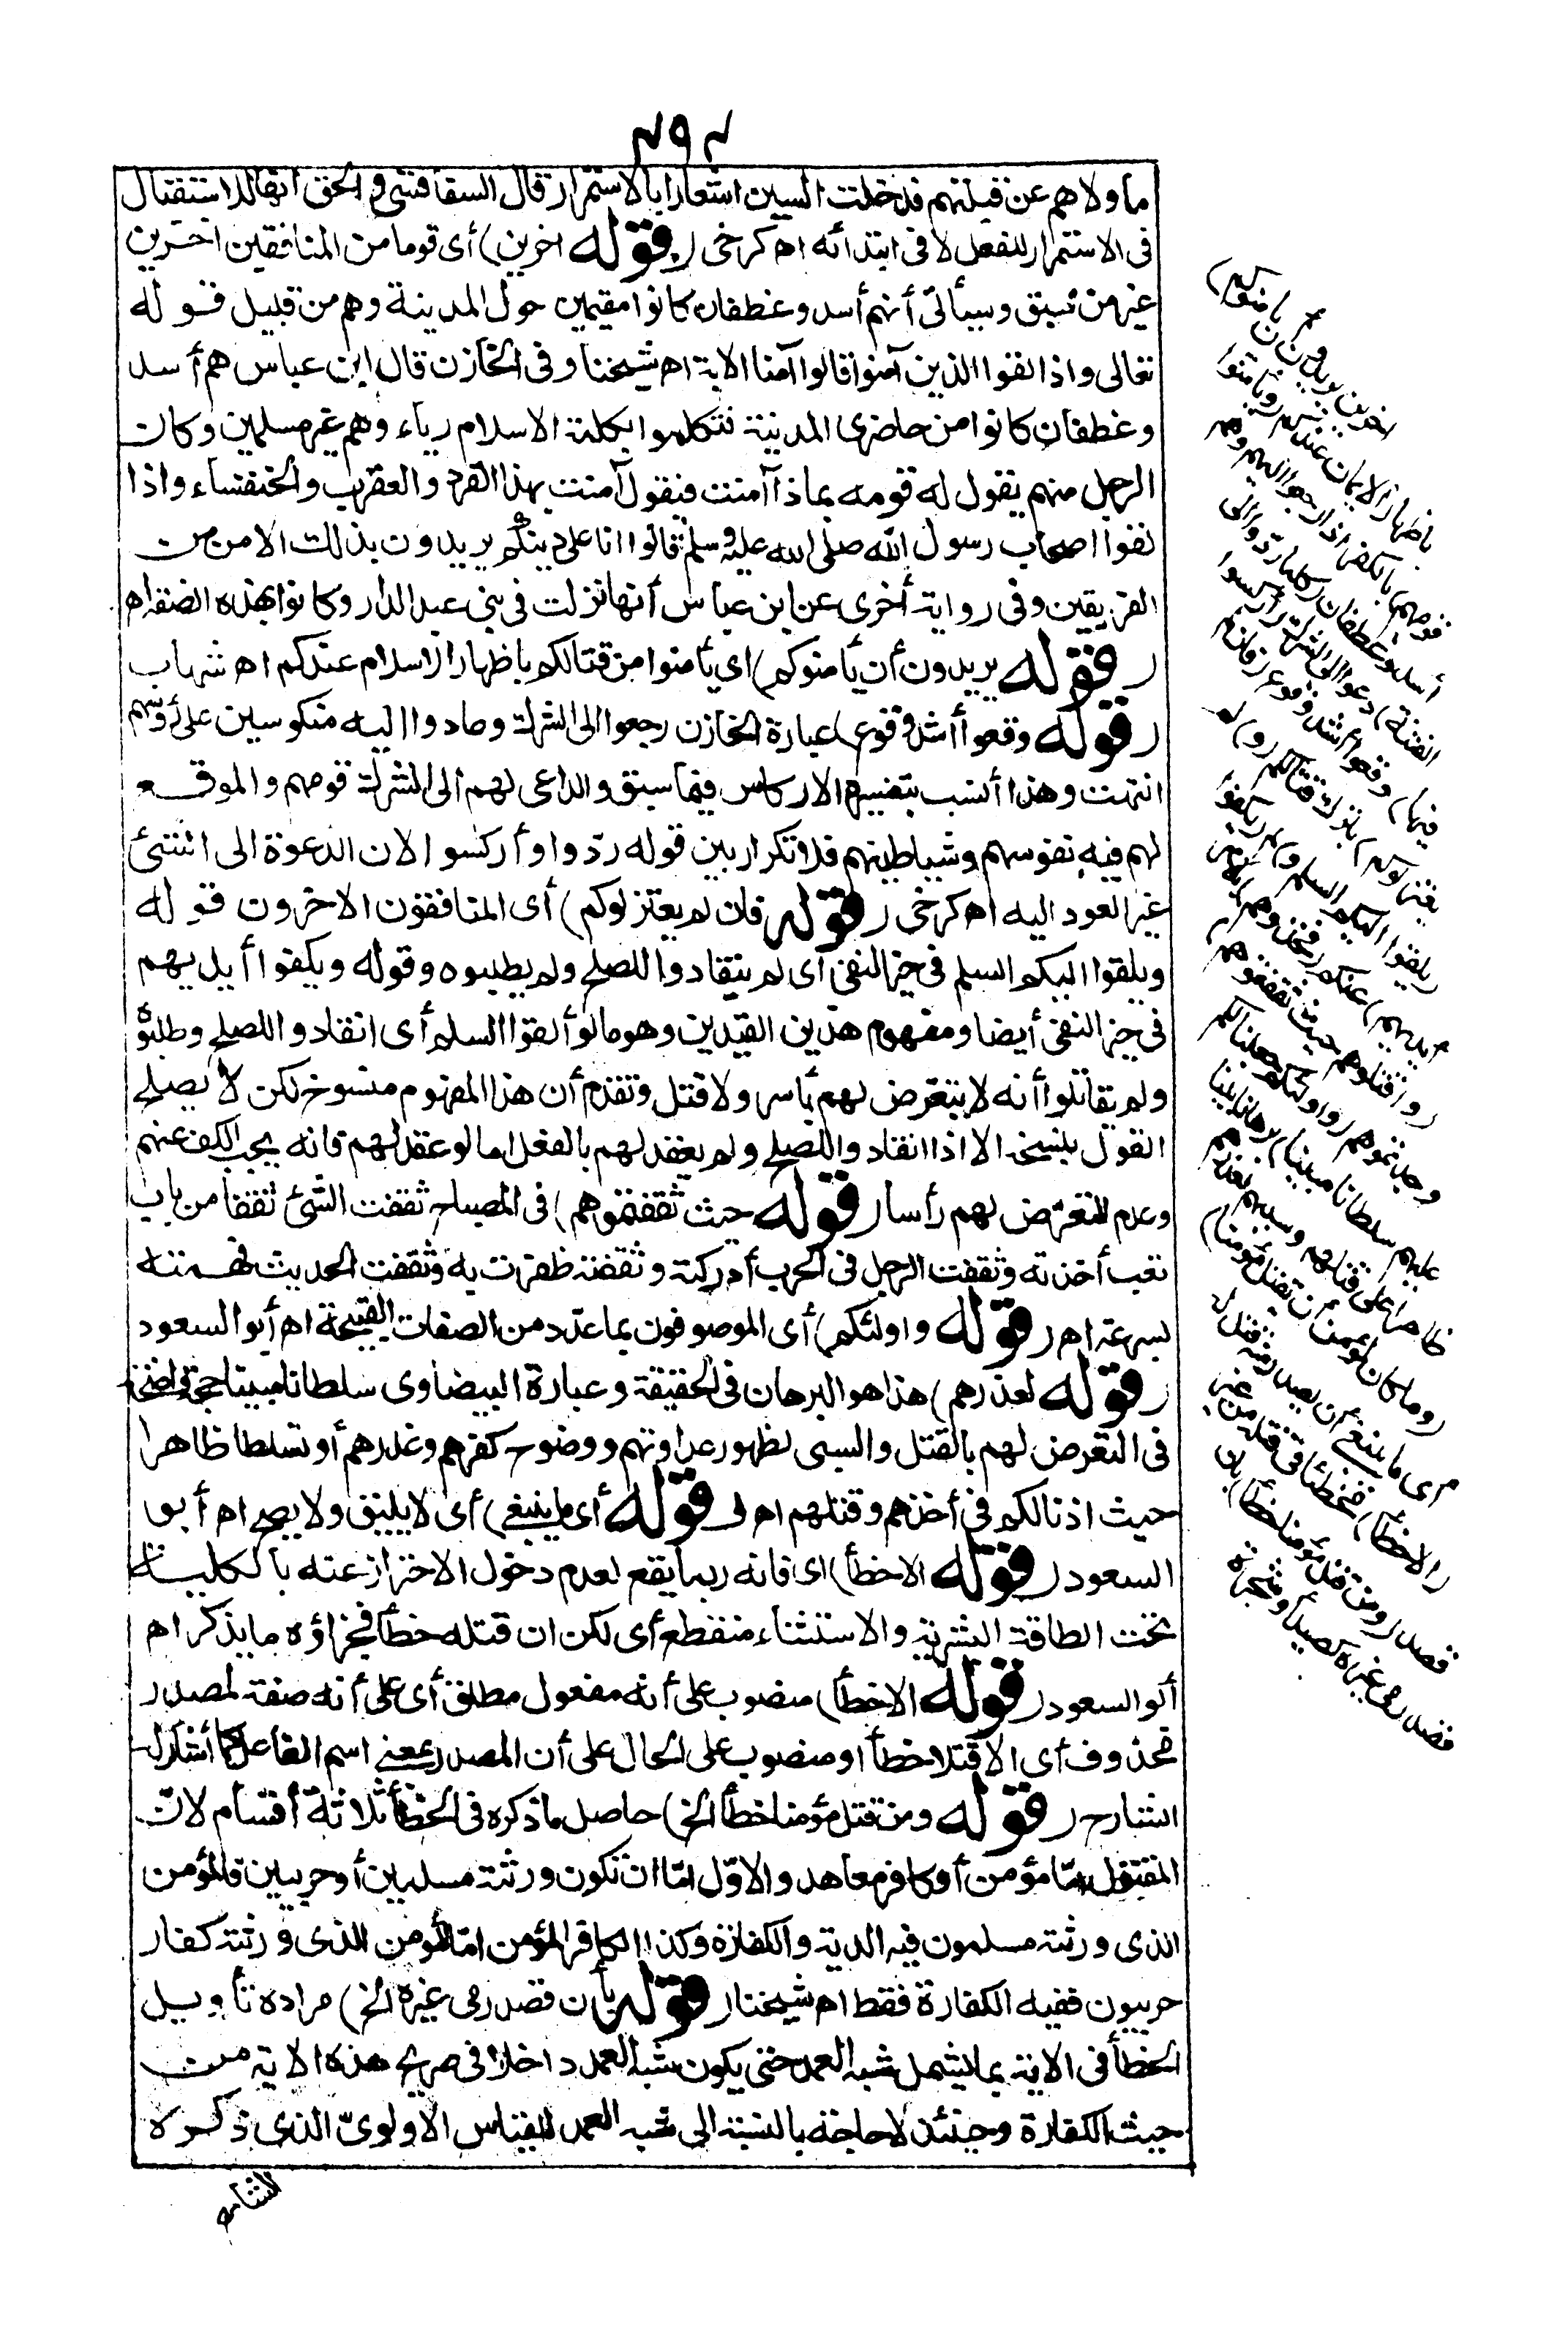 ٢٩٢
ما ولاهم عن قبلتهم فدخلت السين اشعارا بالاستمرار قال السفاقسي والحق انها للاستقبال
فى الاستمرار للفعل لا فى ابتدائه اه كرخى (قوله اخرين) أى قوما من المنافقين اخرين
غير من سبق وسيأتى أنهم أسد وغطفان كانوا مقيمين حول المدينة وهم من قبيل قوله
تعالى واذا لقوا الذين آمنوا قالوا آمنا الاية اه شيخنا وفى الخازن قال ابن عباس هم أسد
وغطفان كانوا من حاضرى المدينة فتكلموا بكلمة الاسلام رياء وهم غير مسلمين وكان
الرجل منهم يقول له قومه بماذا آمنت فيقول آمنت بهذا القرد والعقرب والخنفساء واذا
لقوا اصحاب رسول الله صلى الله عليه وسلم قالوا انا على دينكم يريدون بذلك الامن من
الفريقين وفى رواية أخرى عن ابن عباس أنها نزلت فى بنى عبد الدار وكانوا بهذه الصفة اه
(قوله يريدون أن يأمنوكم) اى يأمنوا من قتالكم باظهار الاسلام عندكم اه شهاب
(قوله وقعوا أشد وقوع) عبارة الخازن رجعوا الى الشرك وعادوا اليه منكوسين على رؤسهم
انتهت وهذا أنسب بتفسير الاركاس فيما سبق والداعى لهم الى الشرك قومهم والموقع
لهم فيه نفوسهم وشياطينهم فلا تكرار بين قوله ردوا وأركسوا لان الدعوة الى الشئ
غير العود اليه اه كرخى (قوله فان لم يعتزلوكم) أى المنافقون الاخرون قوله
ويلقوا اليكم السلم فى حيز النفى أى لم ينقادوا للصلح ولم يطلبوه وقوله ويكفوا أيديهم
فى حيز النفى أيضا ومفهوم هذين القيدين وهو ما لو ألقوا السلم أى انقادوا للصلح وطلبوه
ولم يقاتلوا أنه لا يتعرض لهم بأسر ولا قتل وتقدم أن هذا المفهوم منسوخ لكن لا يصلح
القول بنسخه الا اذا انقادوا للصلح ولم يعقد لهم بالفعل اما لو عقد لهم فانه يجب الكف عنهم
وعدم التعرض لهم رأسا (قوله حيث ثقفتموهم) فى المصباح ثقفت الشئ ثقفا من باب
تعب أخذته وثقفت الرجل فى الحرب أدركته وثقفته ظفرت به وثقفت الحديث فهمته
بسرعة اه (قوله واولئكم) أى الموصوفون بما عدد من الصفات القبيحة اه أبو السعود
(قوله لغدرهم) هذا هو البرهان فى الحقيقة وعبارة البيضاوى سلطانا مبينا حجة واضحة
فى التعرض لهم بالقتل والسبى لظهور عداوتهم ووضوح كفرهم وغدرهم أو تسلطا ظاهرا
حيث اذنا لكم فى أخذهم وقتلهم اه (قوله أى ما ينبغى) أى لا يليق ولا يصح اه أبو
السعود (قوله الا خطأ) اى فانه ربما يقع لعدم دخول الاحتراز عنه بالكلية
تحت الطاقة البشرية والاستثناء منقطع أى لكن ان قتله خطأ فجزاؤه ما يذكر اه
أبو السعود (قوله الا خطأ) منصوب على أنه مفعول مطلق أى على أنه صفة لمصدر
محذوف أى الا قتلا خطأ او منصوب على الحال على أن المصدر بمعنى اسم الفاعل كما أشار له
الشارح (قوله ومن قتل مؤمنا خطأ الخ) حاصل ما ذكره فى الخطأ ثلاثة أقسام لان
المقتول اما مؤمن أو كافر معاهد والاول اما ان تكون ورثته مسلمين أو حربيين فالمؤمن
الذى ورثته مسلمون فيه الدية والكفارة وكذا الكافر المؤمن اما المؤمن الذى ورثته كفار
حربيون ففيه الكفارة فقط اه شيخنا (قوله بأن قصد رمى غيره الخ) مراده تأويل
الخطأ فى الاية بما يشمل شبه العمد حتى يكون شبه العمد داخلا فى صريح هذه الاية من
حيث الكفارة وحينئذ لا حاجة بالنسبة الى شبه العمد للقياس الاولوى الذى ذكره
الشارح
اخرين يريدون أن يأمنوكم)
باظهار الايمان عندكم (ويأمنوا
قومهم) بالكفر اذا رجعوا اليهم وهم
أسد وغطفان (كلما ردوا الى
الفتنة) دعوا الى الشرك (أركسوا
فيها) وقعوا أشد وقوع (فان لم
يعتزلوكم) بترك قتالكم (و) لم
(يلقوا اليكم السلم و) لم (يكفوا
أيديهم) عنكم (فخذوهم) بالاسر
(واقتلوهم حيث ثقفتموهم)
وجدتموهم (واولئكم جعلنا لكم
عليهم سلطانا مبينا) برهانا بينا
ظاهرا على قتلهم وسبيهم لغدرهم
(وما كان لمؤمن أن يقتل مؤمنا)
أى ما ينبغى أن يصدر منه قتل له
(الا خطأ) مخطئا فى قتله من غير
قصد (ومن قتل مؤمنا خطأ) بأن
قصد رمى غيره كصيد أو شجرة